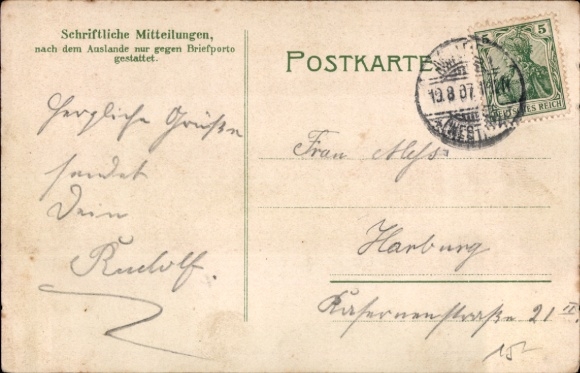 Schriftliche Mitteilungen,
nach dem Auslande nur gegen Briefporto
gestattet.
POSTKARTE
5 5
DEUTSCHES REICH
19.8.07.
Herzliche Grüße
sendet
Dein
Rudolf.
Frau
Harburg
Kasernenstraße 21 II